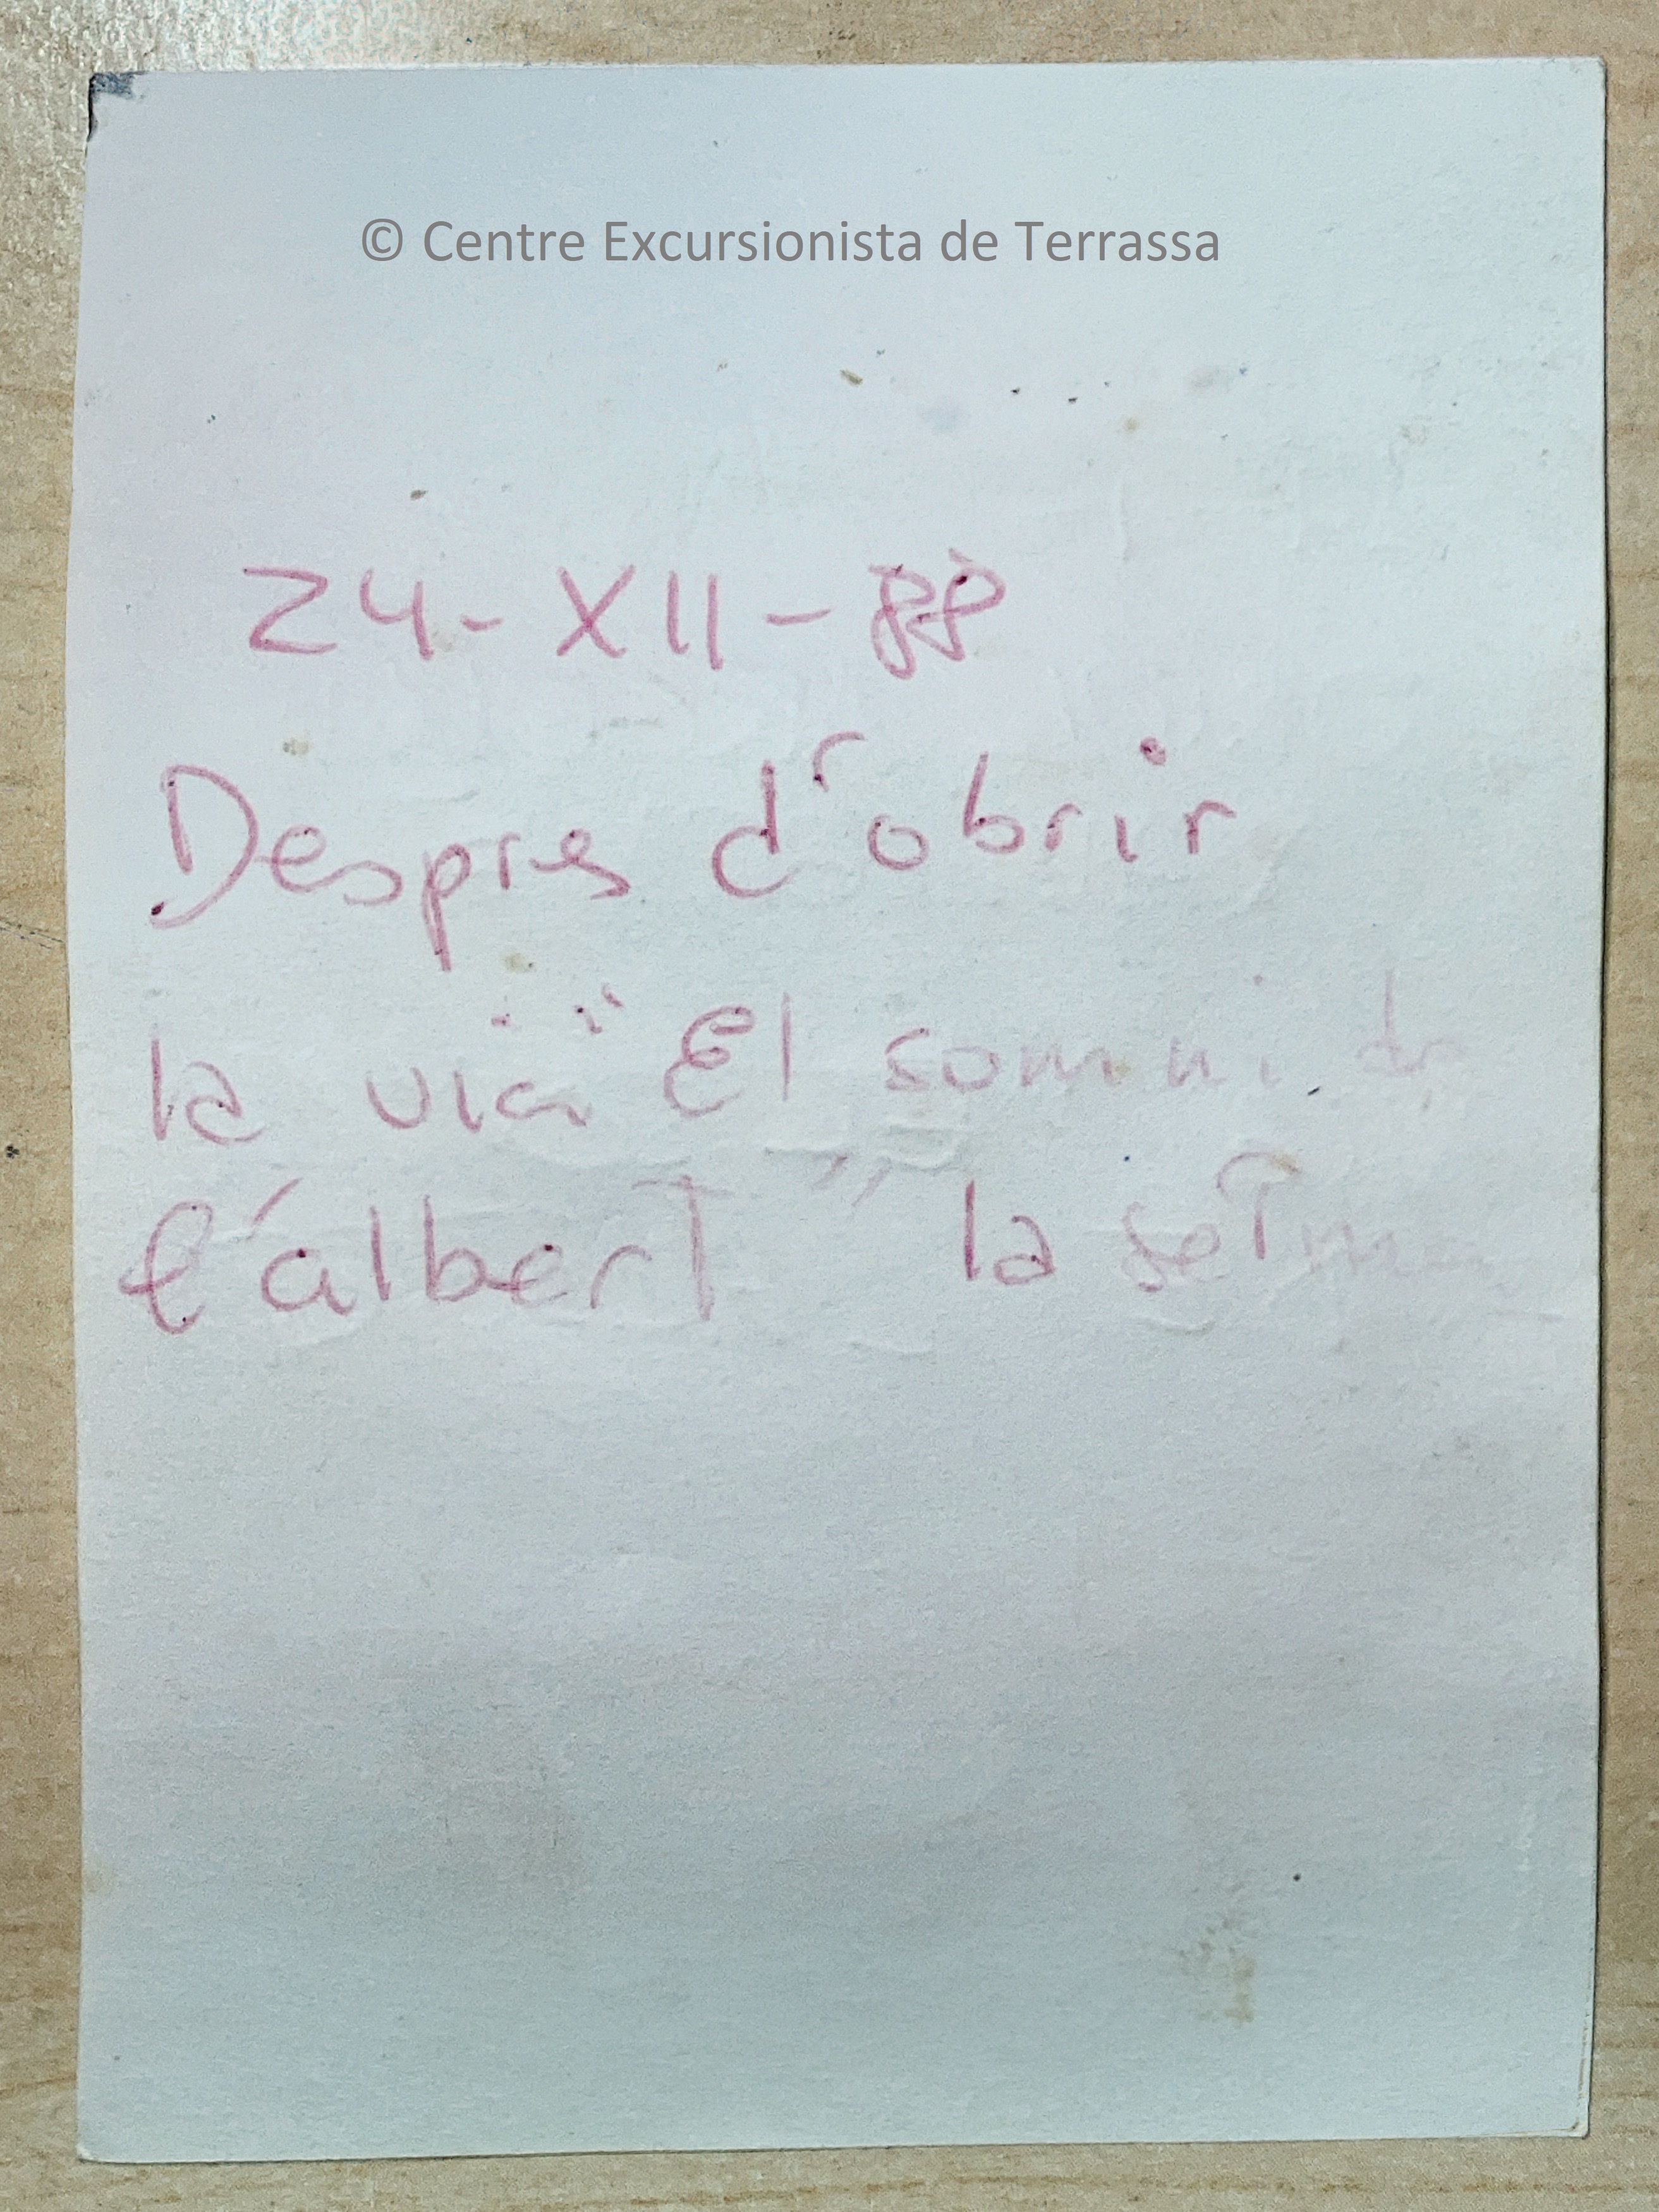 © Centre Excursionista de Terrassa
24-XII-88
Despres d'obrir
la via "El somni de
l'albert" la setm